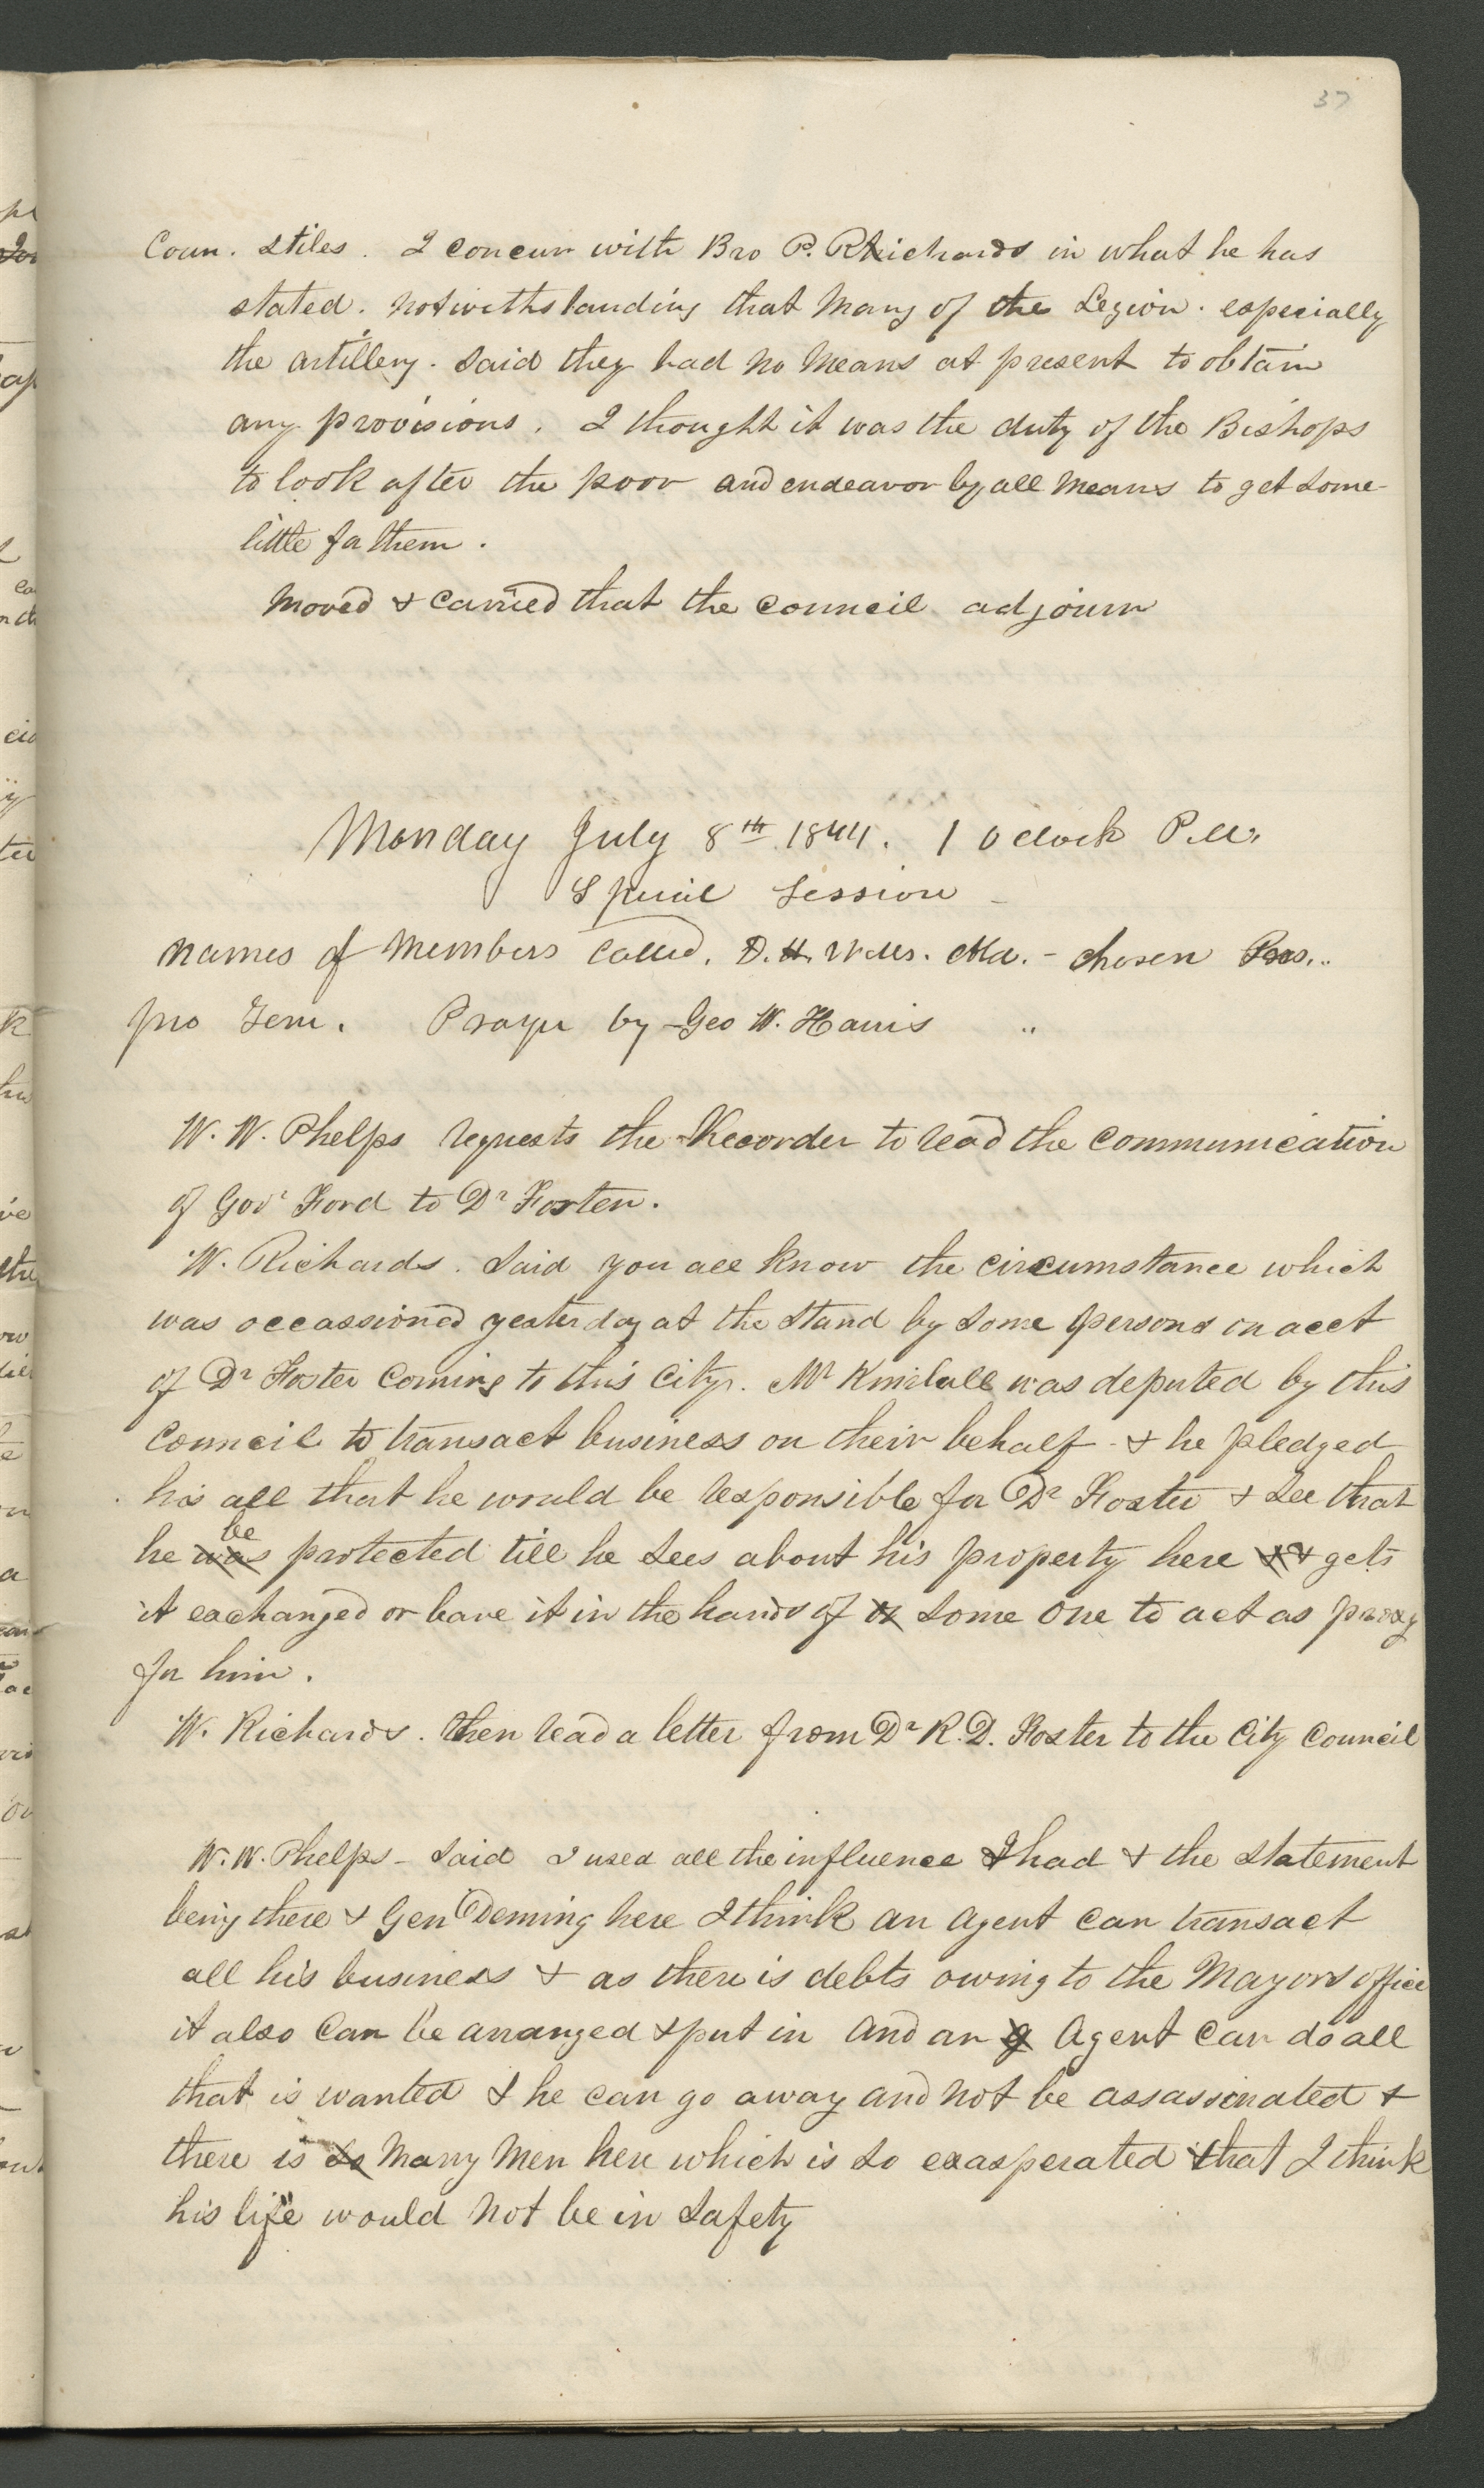 37
Coun. Stiles. I concur with Bro P. Richards in what he has
stated. notwithstanding that many of the Legion. especially
the artillery. said they had no means at present to obtain
any provisions. I thought it was the duty of the Bishops
to look after the poor and endeavor by all means to get some
little for them.
moved & carried that the council adjourn
Monday July 8th 1844. 1 O clock P.M.
Special Session
names of members called. D. H. Wells. Ald. - chosen Pres..
pro Tem. Prayer by Geo W. Harris
W. W. Phelps requests the Recorder to read the communication
of Govr Ford to Dr Foster.
W. Richards. said you all know the circumstance which
was occassioned yesterday at the stand by some persons on acct
of Dr Foster coming to this city. Mr Kimball was deputed by this
council to transact business on their behalf - & he pledged
his all that he would be responsible for Dr Foster & see that
he was be protected till he sees about his property here & & gets
it exchanged or leave it in the hands of some one to act as proxy
for him.
W. Richards. then read a letter from Dr R. D. Foster to the City Council
W. W. Phelps - said I used all the influence I had & the statement
being there & Gen Deming here I think an agent can transact
all his business & as there is debts owing to the Mayors office
it also can be arranged & put in and an g Agent can do all
that is wanted & he can go away and not be assassinated &
there is so many men here which is so exasperated that I think
his life would not be in safety